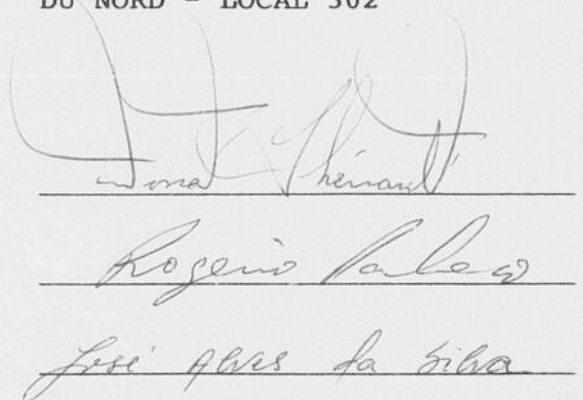 DU NORD - LOCAL 302
Thériault
Rogerio Pacheco
José Alves da Silva